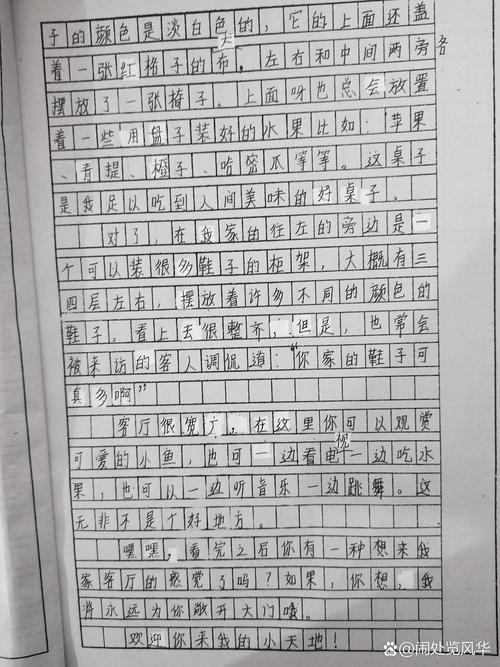 子的颜色是淡白色的，它的上面还盖
着一张红格子的大布。左右和中间两旁各
摆放了一张椅子。上面呀也总会放置
着一些用盘子装好的水果比如：苹果
、青提、橙子、哈密瓜等等。这桌子
是我足以吃到人间美味的好桌子。
对了，在我家的往左的旁边是一
个可以装很多鞋子的柜架，大概有三
四层左右，摆放着许多不同的颜色的
鞋子。看上去很整齐，但是，也常会
被来访的客人调侃道：“你家的鞋子可
真多啊”
客厅很宽广，在这里你可以观赏
可爱的小鱼，也可一边看电视一边吃水
果，也可以一边听音乐一边跳舞。这
无非不是个好地方。
嘿嘿，看完之后你有一种想来我
家客厅的感觉了吗？如果，你想，我
将永远为你敞开大门哦。
欢迎你来我的小天地！
@闹处览风华